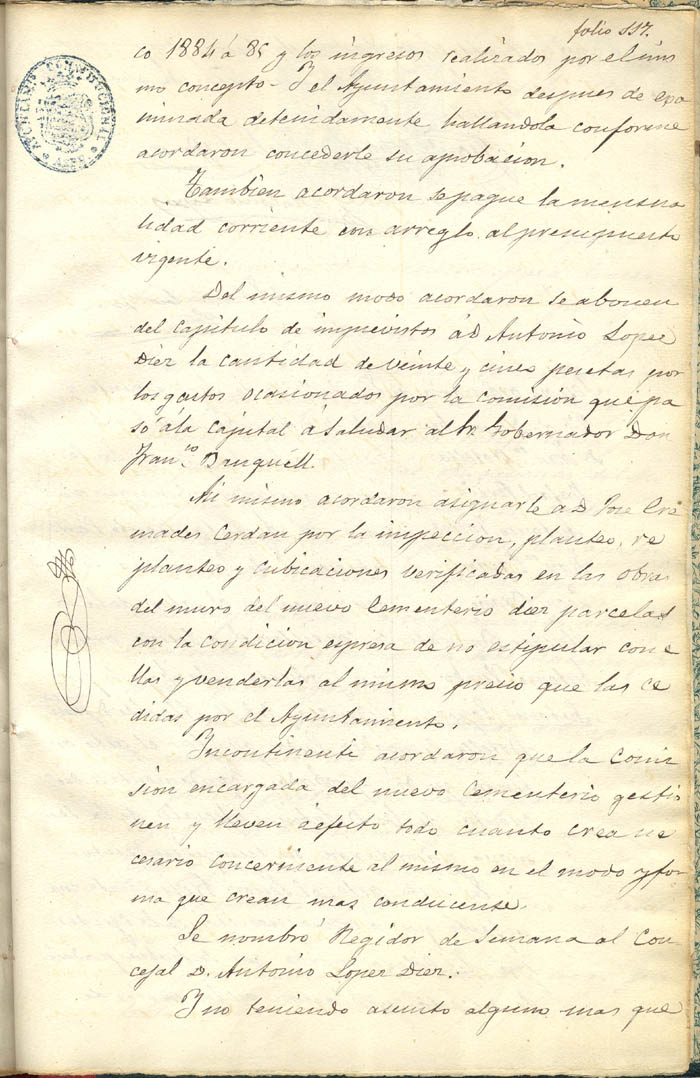 folio 117.
co 1884 á 85 y los ingresos realizados por el mis
mo concepto - Y el Ayuntamiento despues de exa
minada detenidamente hallandola conforme
acordaron concederle su aprobacion.
Tambien acordaron se pague la mensua
lidad corriente con arreglo al presupuesto
vigente.
Del mismo modo acordaron se abonen
del capitulo de imprevistos á D. Antonio Lopez
Diez la cantidad de veinte y cinco pesetas por
los gastos ocasionados por la comisión que pa
só á la Capital á Saludar al Sr. Gobernador Don
Fran.co
Asi mismo acordaron asignarle a D. Jose Cre
mades Cerdan por la inspeccion, planteo, re
planteo y cubicaciones verificadas en las obras
del muro del nuevo Cementerio diez parcelas
con la condicion espresa de no estipular con e
llas y venderlas al mismo precio que las ce
didas por el Ayuntamiento.
Incontinenti acordaron que la Comi
sion encargada del nuevo Cementerio gestio
nen y lleven á efecto todo cuanto crea ne
cesario concerniente al mismo en el modo y for
ma que crean mas conducente.
Se nombró Regidor de Semana al Con
cejal D. Antonio Lopez Diez.
Y no teniendo asunto alguno mas que